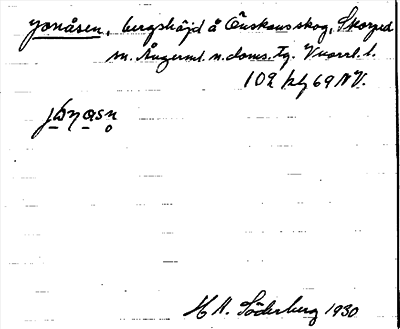 Jonåsen, bergshöjd å Önskans skog, Skorped
sn. Ångerml. n. doms. tg. V.norrl. l.
102 kbl 69 NV.
H A. Söderberg 1930